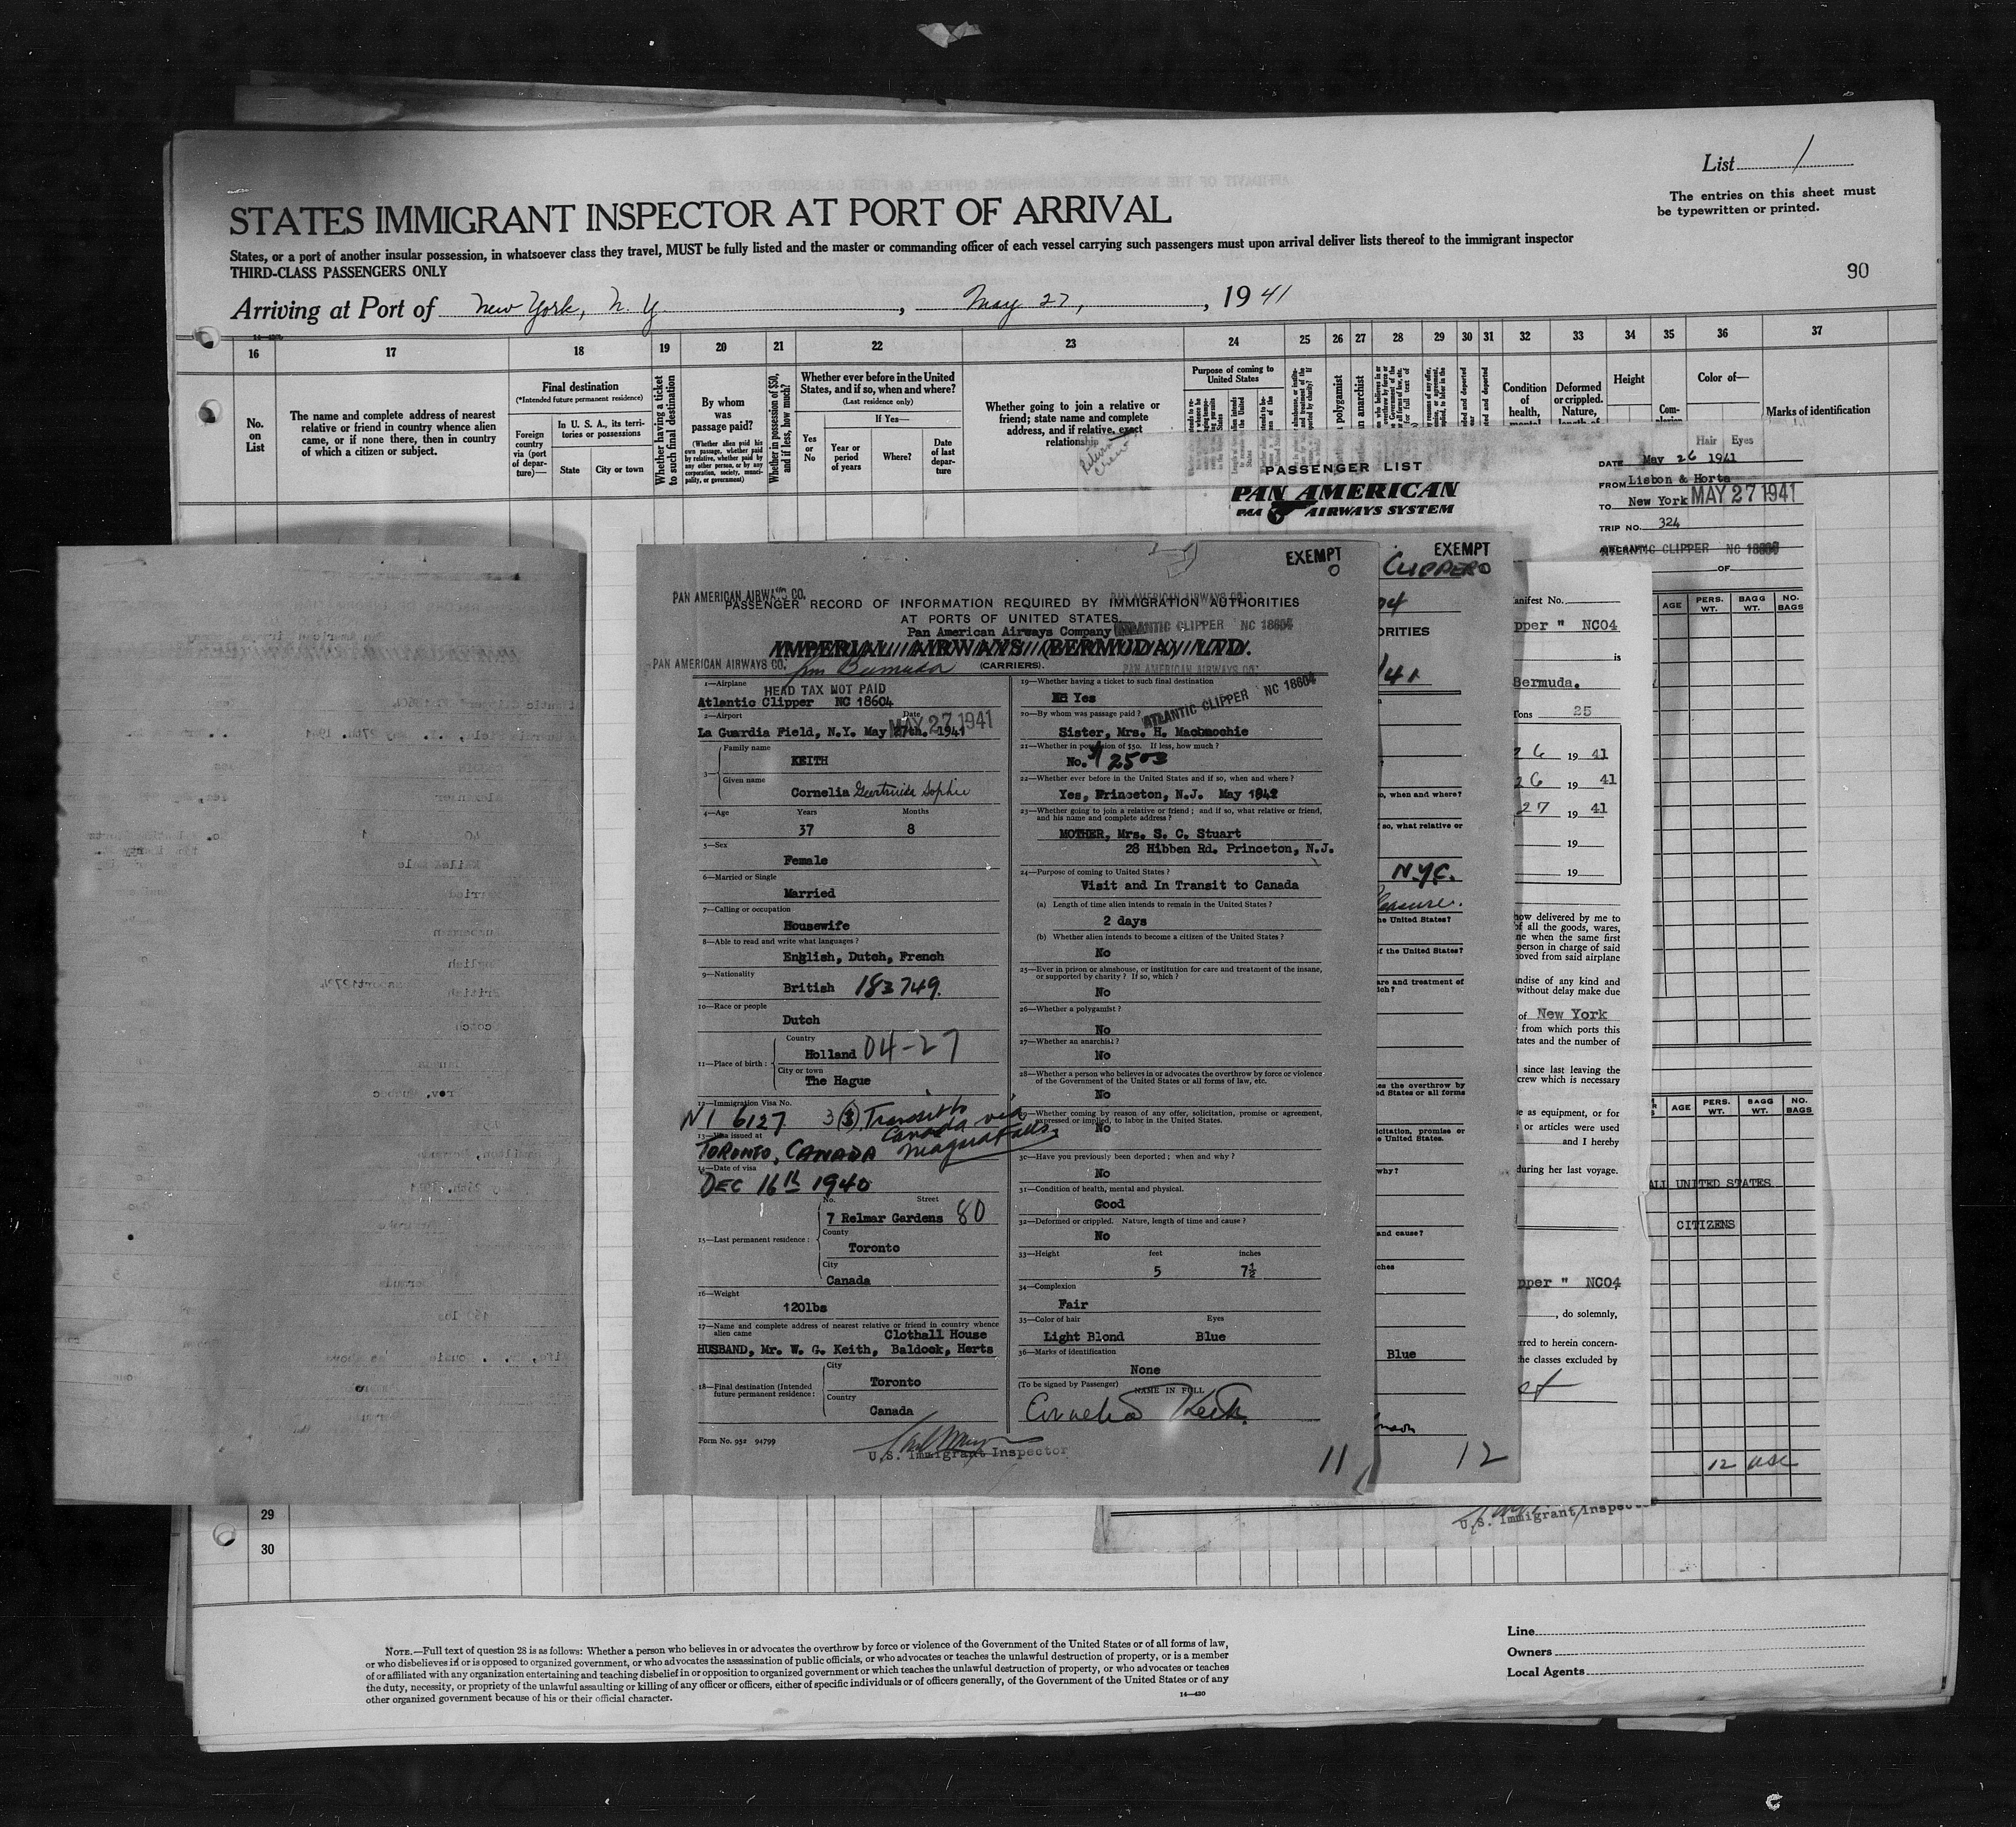 List 1
The entries on this sheet must
be typewritten or printed.
STATES IMMIGRANT INSPECTOR AT PORT OF ARRIVAL
States, or a port of another insular possession, in whatsoever class they travel, MUST be fully listed and the master or commanding officer of each vessel carrying such passengers must upon arrival deliver lists thereof to the immigrant inspector
THIRD-CLASS PASSENGERS ONLY
90
Arriving at Port of New York, N. Y. , May 27, , 19 41
16 17 18 19 20 21 22 23 24 25 26 27 28 29 30 31 32 33 34 35 36 37
No.
on
List
The name and complete address of nearest
relative or friend in country whence alien
came, or if none there, then in country
of which a citizen or subject.
Final destination
(*Intended future permanent residence)
Foreign
country
via (port
of depar-
ture)—
In U. S. A., its terri-
tories or possessions
State
City or town
Whether having a ticket
to such final destination
By whom
was
passage paid?
(Whether alien paid his
own passage, whether paid
by relative, whether paid by
any other person, or by any
corporation, society, munici-
pality, or government)
Whether in possession of $50,
and if less, how much?
Whether ever before in the United
States, and if so, when and where?
(Last residence only)
Yes
or
No
If Yes—
Year or
period
of years
Where?
Date
of last
depar-
ture
Whether going to join a relative or
friend; state name and complete
address, and if relative, exact
relationship
Purpose of coming to
United States
polygamist
anarchist
Condition
of
health,
Deformed
or crippled.
Nature,
Height
Com-
Color of—
Hair Eyes
Marks of identification
PASSENGER LIST
PAN AMERICAN
AIRWAYS SYSTEM
DATE May 26 1941
FROM Lisbon & Horta
TO New York MAY 27 1941
TRIP NO. 324
ATLANTIC CLIPPER NC 18604
OF
AGE PERS. WT. BAGG WT. NO. BAGS
EXEMPT
O
PAN AMERICAN AIRWAYS CO.
PAN AMERICAN AIRWAYS CO.
PASSENGER RECORD OF INFORMATION REQUIRED BY IMMIGRATION AUTHORITIES
AT PORTS OF UNITED STATES
Pan American Airways Company
ATLANTIC CLIPPER NC 18604
IMPERIAL AIRWAYS (BERMUDA) LTD.
PAN AMERICAN AIRWAYS CO.
from Bermuda
(CARRIERS).
PAN AMERICAN AIRWAYS CO.
1—Airplane
HEAD TAX NOT PAID
Atlantic Clipper NC 18604
2—Airport
Date
La Guardia Field, N.Y. May 27th. 1941
MAY 27 1941
3—
Family name
KEITH
Given name
Cornelia Geertruida Sophie
4—Age
Years
Months
37
8
5—Sex
Female
6—Married or Single
Married
7—Calling or occupation
Housewife
8—Able to read and write what languages?
English, Dutch, French
9—Nationality
British 183749.
10—Race or people
Dutch
11—Place of birth:
Country
Holland 04-27
City or town
The Hague
12—Immigration Visa No.
N I 6127 3(3) Transit to
Canada via
Niagara Falls
13—Visa issued at
TORONTO, CANADA
14—Date of visa
DEC 16th 1940
15—Last permanent residence:
No.
Street
7 Relmar Gardens 80
County
Toronto
City
Canada
16—Weight
120lbs
17—Name and complete address of nearest relative or friend in country whence
alien came
Clothall House
HUSBAND, Mr. W. G. Keith, Baldock, Herts
18—Final destination (Intended
future permanent residence:
City
Toronto
Country
Canada
Form No. 952 94799
U.S. Immigrant Inspector
19—Whether having a ticket to such final destination
Yes
ATLANTIC CLIPPER NC 18604
20—By whom was passage paid?
Sister, Mrs. H. Macmochie
21—Whether in possession of $50. If less, how much?
No.
22—Whether ever before in the United States and if so, when and where?
Yes, Princeton, N.J. May 1942
23—Whether going to join a relative or friend; and if so, what relative or friend,
and his name and complete address?
MOTHER, Mrs. S. C. Stuart
28 Hibben Rd. Princeton, N.J.
24—Purpose of coming to United States?
Visit and In Transit to Canada
(a) Length of time alien intends to remain in the United States?
2 days
(b) Whether alien intends to become a citizen of the United States?
No
25—Ever in prison or almshouse, or institution for care and treatment of the insane,
or supported by charity? If so, which?
No
26—Whether a polygamist?
No
27—Whether an anarchist?
No
28—Whether a person who believes in or advocates the overthrow by force or violence
of the Government of the United States or all forms of law, etc.
No
Whether coming by reason of any offer, solicitation, promise or agreement,
expressed or implied, to labor in the United States.
No
30—Have you previously been deported; when and why?
No
31—Condition of health, mental and physical.
Good
32—Deformed or crippled. Nature, length of time and cause?
No
33—Height
feet
inches
5
7½
34—Complexion
Fair
35—Color of hair
Eyes
Light Blond
Blue
36—Marks of identification
None
(To be signed by Passenger)
NAME IN FULL
Cornelia Keith.
11
EXEMPT
CLIPPER
04
ORITIES
/41
, when and where?
so, what relative or
N.Y.C.
Pleasure.
he United States?
f the United States?
are and treatment of
ich?
es the overthrow by
ed States or all forms
icitation, promise or
e United States.
why?
and cause?
ches
Blue
12
anifest No.
pper " NC04
is
Bermuda.
Tons 25
26 19 41
26 19 41
27 19 41
19
19
now delivered by me to
of all the goods, wares,
ne when the same first
person in charge of said
oved from said airplane
andise of any kind and
without delay make due
of New York
from which ports this
tates and the number of
since last leaving the
crew which is necessary
e as equipment, or for
or articles were used
and I hereby
during her last voyage.
pper " NC04
, do solemnly,
rred to herein concern-
the classes excluded by
AGE PERS. WT. BAGG WT. NO. BAGS
ALL UNITED STATES
CITIZENS
12 USC
U.S. Immigrant Inspector
29
30
NOTE.—Full text of question 28 is as follows: Whether a person who believes in or advocates the overthrow by force or violence of the Government of the United States or of all forms of law,
or who disbelieves in or is opposed to organized government, or who advocates the assassination of public officials, or who advocates or teaches the unlawful destruction of property, or is a member
of or affiliated with any organization entertaining and teaching disbelief in or opposition to organized government or which teaches the unlawful destruction of property, or who advocates or teaches
the duty, necessity, or propriety of the unlawful assaulting or killing of any officer or officers, either of specific individuals or of officers generally, of the Government of the United States or of any
other organized government because of his or their official character.
14—430
Line
Owners
Local Agents